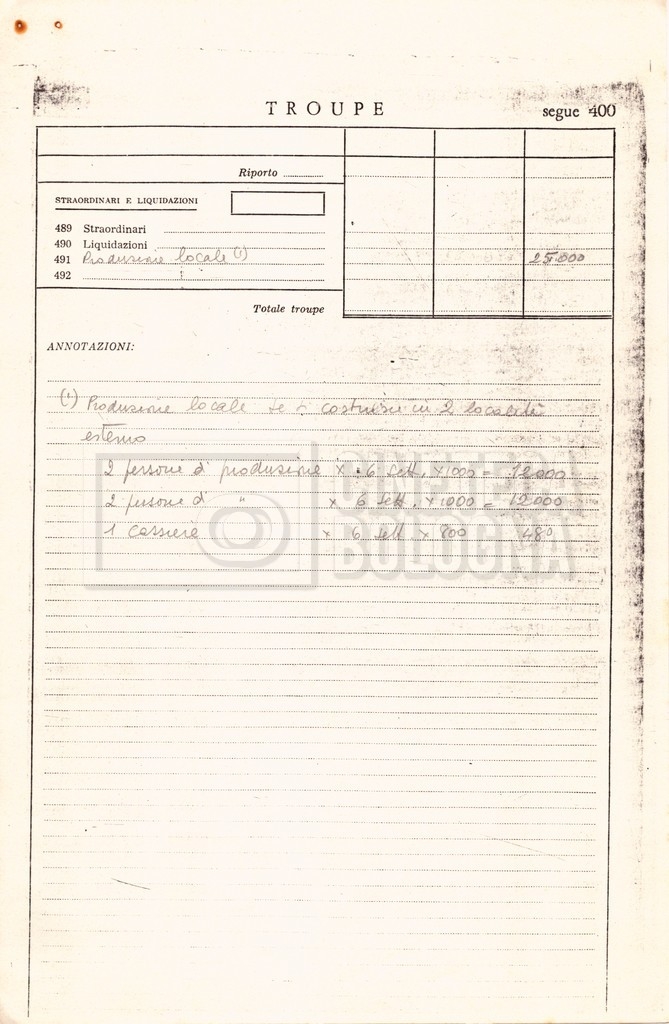 TROUPE segue 400
Riporto
STRAORDINARI E LIQUIDAZIONI
489 Straordinari
490 Liquidazioni
491 Produzione locale (1) 25.000
492
Totale troupe
ANNOTAZIONI:
(1) Produzione locale se si costruisce in 2 località
esterno
2 persone di produzione x 6 sett. x 1000 = 12.000
2 persone di " x 6 sett. x 1000 = 12.000
1 cassiere x 6 sett x 800 480
CINETECA
BOLOGNA